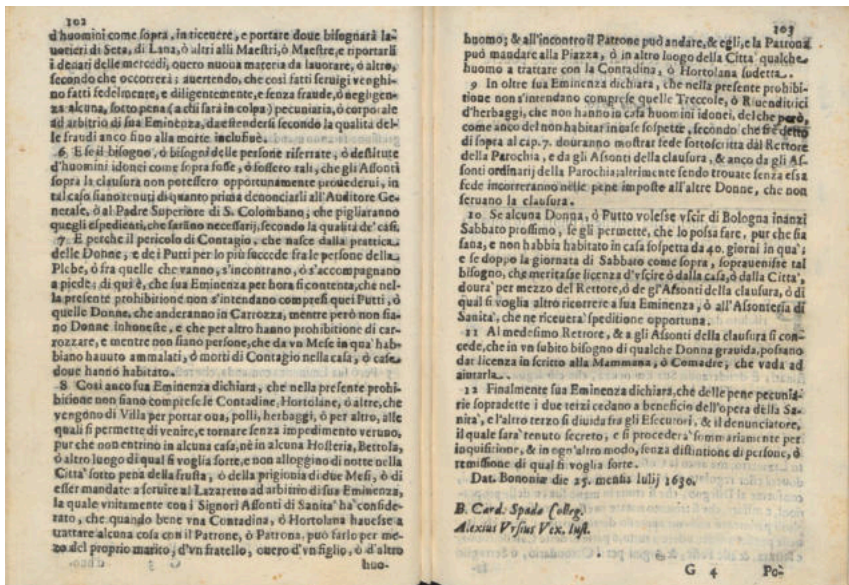 102
d'huomini come sopra, in riceuere, e portare doue bisognarà la-
uorieri di Seta, di Lana, ò altri alli Maestri, ò Maestre, e riportarli
i denari delle mercedi, ouero nuoua materia da lauorare, ò altro,
secondo che occorrerà; auertendo, che così fatti seruigi venghi-
no fatti fedelmente, e diligentemente, e senza fraude, ò negligen-
za alcuna, sotto pena (a chi sarà in colpa) pecuniaria, ò corporale
ad arbitrio di sua Eminenza, da estendersi secondo la qualità del-
le fraudi anco fino alla morte inclusiuè.
6 E se il bisogno, ò bisogni delle persone riserrate, ò destitute
d'huomini idonei come sopra fosse, ò fossero tali, che gli Assonti
sopra la clausura non potessero opportunamente prouederui, in
tal caso siano tenuti di quanto prima denonciarli all'Auditore Ge-
nerale, ò al Padre Superiore di S. Colombano, che pigliaranno
quegli espedienti, che saranno necessarij, secondo la qualità de' casi.
7 E perche il pericolo di Contagio, che nasce dalla prattica
delle Donne, e dei Putti per lo più succede fra le persone della
Plebe, ò fra quelle che vanno, s'incontrano, ò s'accompagnano
a piede; di quì è, che sua Eminenza per hora si contenta, che nel-
la presente prohibitione non s'intendano compresi quei Putti, ò
quelle Donne, che anderanno in Carrozza, mentre però non sia-
no Donne inhoneste, e che per altro hanno prohibitione di car-
rozzare, e mentre non siano persone, che da vn Mese in qua' hab-
biano hauuto ammalati, ò morti di Contagio nella casa, ò case
doue hanno habitato.
8 Così anco sua Eminenza dichiara, che nella presente prohi-
bitione non siano comprese le Contadine, Hortolane, ò altre, che
vengono di Villa per portar oua, polli, herbaggi, ò per altro, alle
quali si permette di venire, e tornare senza impedimento veruno,
pur che non entrino in alcuna casa, nè in alcuna Hosteria, Bettola,
ò altro luogo di qual si voglia sorte, e non alloggino di notte nella
Città' sotto pena della frusta, ò della prigionia di due Mesi, ò di
esser mandate a seruire al Lazaretto ad arbitrio di sua Eminenza,
la quale vnitamente con i Signori Assonti di Sanita' hà conside-
rato, che quando bene vna Contadina, ò Hortolana hauesse a
trattare alcuna cosa con il Patrone, ò Patrona, può farlo per me-
zo del proprio marito, d'vn fratello, ouero d'vn figlio, ò d'altro
huo-
103
huomo; & all'incontro il Patrone può andare, & egli, e la Patrona
può mandare alla Piazza, ò in altro luogo della Citta' qualche
huomo a trattare con la Contadina, ò Hortolana sudetta.
9 In oltre sua Eminenza dichiara, che nella presente prohibi-
tione non s'intendano comprese quelle Treccole, ò Riuenditrici
d'herbaggi, che non hanno in casa huomini idonei, del che però,
come anco del non habitar in case sospette, secondo che si è detto
di sopra al cap. 7. douranno mostrar fede sottoscritta dal Rettore
della Parochia, e da gli Assonti della clausura, & anco da gli As-
sonti ordinarij della Parochia; altrimente sendo trouate senza essa
fede incorreranno nelle pene imposte all'altre Donne, che non
seruano la clausura.
10 Se alcuna Donna, ò Putto volesse vscir di Bologna inanzi
Sabbato prossimo, se gli permette, che lo possa fare, pur che sia
sana, e non habbia habitato in casa sospetta da 40. giorni in quà;
e se doppo la giornata di Sabbato come sopra, soprauenisse tal
bisogno, che meritasse licenza d'vscire ò dalla casa, ò dalla Citta',
doura' per mezzo del Rettore, ò de gl'Assonti della clausura, ò di
qual si voglia altro ricorrere a sua Eminenza, ò all'Assonteria di
Sanita', che ne riceuera' speditione opportuna.
11 Al medesimo Rettore, & a gli Assonti della clausura si con-
cede, che in vn subito bisogno di qualche Donna grauida, possano
dar licenza in scritto alla Mammana, ò Comadre, che vada ad
aiutarla.
12 Finalmente sua Eminenza dichiara, che delle pene pecunia-
rie sopradette i due terzi cedano a beneficio dell'opera della Sa-
nita', e l'altro terzo si diuida fra gli Esecutori, & il denunciatore,
il quale sara' tenuto secreto, e si procedera' sommariamente per
inquisitione, & in ogn'altro modo, senza distintione di persone, ò
remissione di qual si voglia sorte.
Dat. Bononiæ die 25. mensis Iulij 1630.
B. Card. Spada Colleg.
Alexius Vrsius Vex. Iust.
G 4 Po-